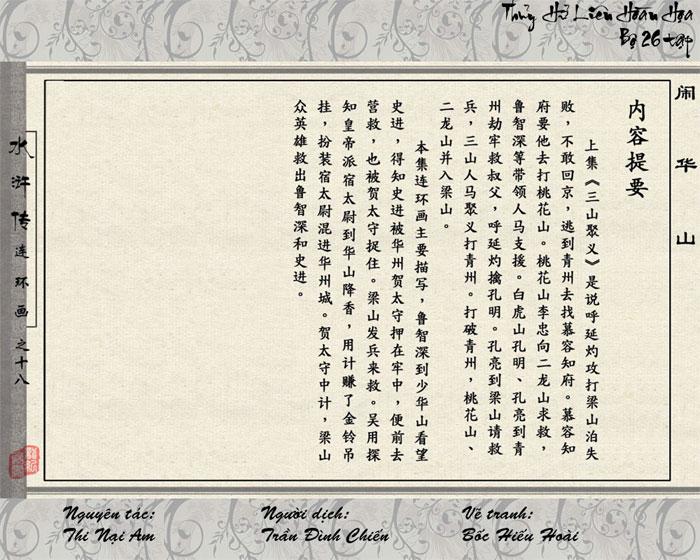 Thủy Hử Liên Hoàn Họa
Bộ 26 tập
闹华山
内容提要
上集《三山聚义》是说呼延灼攻打梁山泊失
败，不敢回京，逃到青州去找慕容知府。慕容知
府要他去打桃花山。桃花山李忠向二龙山求救，
鲁智深等带领人马支援。白虎山孔明、孔亮到青
州劫牢救叔父，呼延灼擒孔明。孔亮到梁山请救
兵，三山人马聚义打青州。打破青州，桃花山、
二龙山并入梁山。
本集连环画主要描写，鲁智深到少华山看望
史进，得知史进被华州贺太守押在牢中，便前去
营救，也被贺太守捉住。梁山发兵来救。吴用探
知皇帝派宿太尉到华山降香，用计赚了金铃吊
挂，扮装宿太尉混进华州城。贺太守中计，梁山
众英雄救出鲁智深和史进。
水浒传连环画之十八
Nguyên tác:
Thi Nại Am
Người dịch:
Trần Đình Chiến
Vẽ tranh:
Bốc Hiếu Hoài